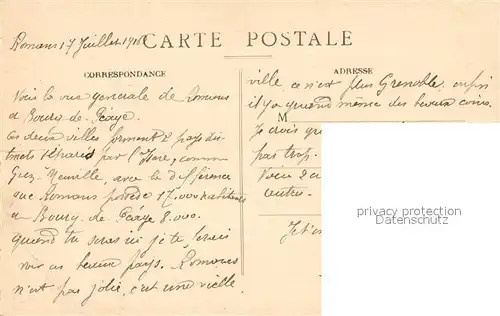 Romans 17 Juillet 1916
CARTE POSTALE
CORRESPONDANCE
Voici la vue generale de Romans
et Bourg-de-Péage.
Ces deux villes forment 2 pays dis-
tincts séparés par l'Isère, comme
Grez-Neuville, avec la différence
que Romans possède 17.000 habitants
et Bourg de Péage 8.000.
quand tu seras ici je te ferais
voir ce beau pays. Romans
n'est pas jolie, c'est une vieille
ADRESSE
ville, ce n'est plus Grenoble. enfin
il y a quand même des beaux coins.
M
Je crois
pas trop.
Je t'
privacy protection
Datenschutz